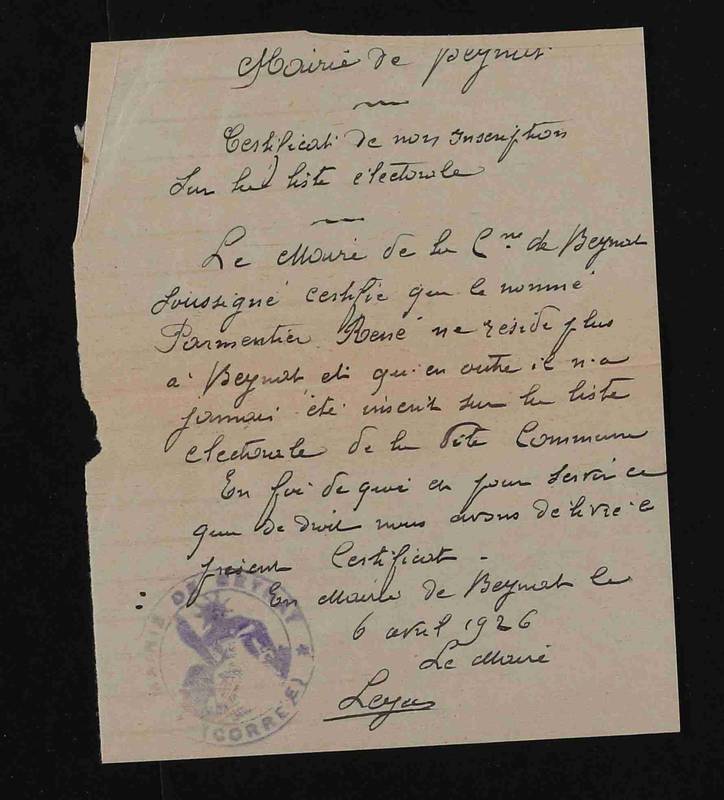 Mairie de Beynat
Certificat de non inscription
sur la liste électorale
Le Maire de la Cne de Beynat
soussigné certifie que le nommé
Parmentier René ne réside plus
à Beynat et qu'en outre il n'a
jamais été inscrit sur la liste
électorale de la dite Commune
En foi de quoi et pour servir ce
que de droit nous avons délivré le
présent Certificat.
En Mairie de Beynat le
6 avril 1926
Le Maire
MAIRIE DE BEYNAT
(CORRÈZE)